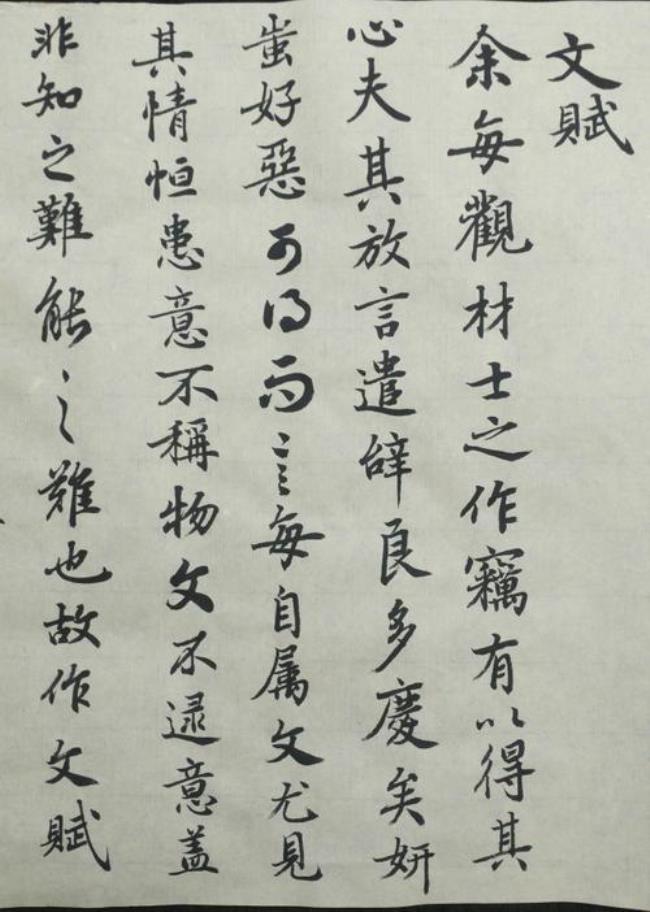 文賦
余每觀材士之作竊有以得其
心夫其放言遣辝良多慶矣妍
蚩好惡可得而言每自属文尤見
其情恒患意不稱物文不逮意盖
非知之難能之難也故作文賦